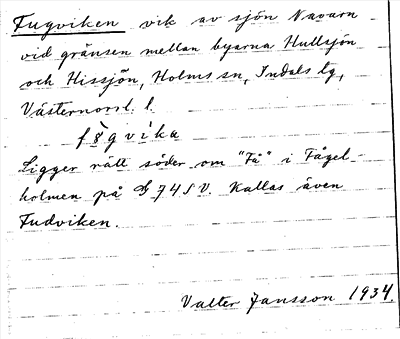 Fugviken vik av sjön Navarn
vid gränsen mellan byarna Hullsjön
och Hissjön, Holms sn, Indals tg,
Västernorrl. l.
fŏ̀gvìka
Ligger rätt söder om "Få" i Fågel-
holmen på 74 SV. Kallas även
Fudviken.
Valter Jansson 1934.